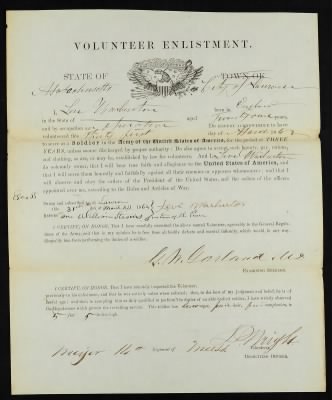 VOLUNTEER ENLISTMENT.
STATE OF TOWN OF
Massachusetts City of Lawrence
I, Levi Warburton born in England
in the State of aged
and by occupation an operative Do HEREBY ACKNOWLEDGE to have
volunteered this thirty first day of March 186
to serve as a Soldier in the Army of the United States of America, for the period of THREE
YEARS, unless sooner discharged by proper authority: Do also agree to accept such bounty, pay, rations,
and clothing, as are, or may be, established by law for volunteers. And I, Levi Warburton
do solemnly swear, that I will bear true faith and allegiance to the United States of America, and
that I will serve them honestly and faithfully against all their enemies or opposers whomsoever; and that
I will observe and obey the orders of the President of the United States, and the orders of the officers
appointed over me, according to the Rules and Articles of War.
Sworn and subscribed to, at Lawrence
this 31st day of March 186 Levi Warburton
BEFORE William Stevens Justice of the Peace
I CERTIFY, ON HONOR, That I have carefully examined the above named Volunteer, agreeably to the General Regulations
of the Army, and that in my opinion he is free from all bodily defects and mental infirmity, which would, in any way,
disqualify him from performing the duties of a soldier.
G. W. Garland M.D.
EXAMINING SURGEON.
I CERTIFY, ON HONOR, That I have minutely inspected the Volunteer,
previously to his enlistment, and that he was entirely sober when enlisted; that, to the best of my judgment and belief, he is of
lawful age; and that, in accepting him as duly qualified to perform the duties of an able-bodied soldier, I have strictly observed
the Regulations which govern the recruiting service. This soldier has eyes, hair, complexion, is
5 feet 5 inches high.
Regiment of
Wright
RECRUITING OFFICER.